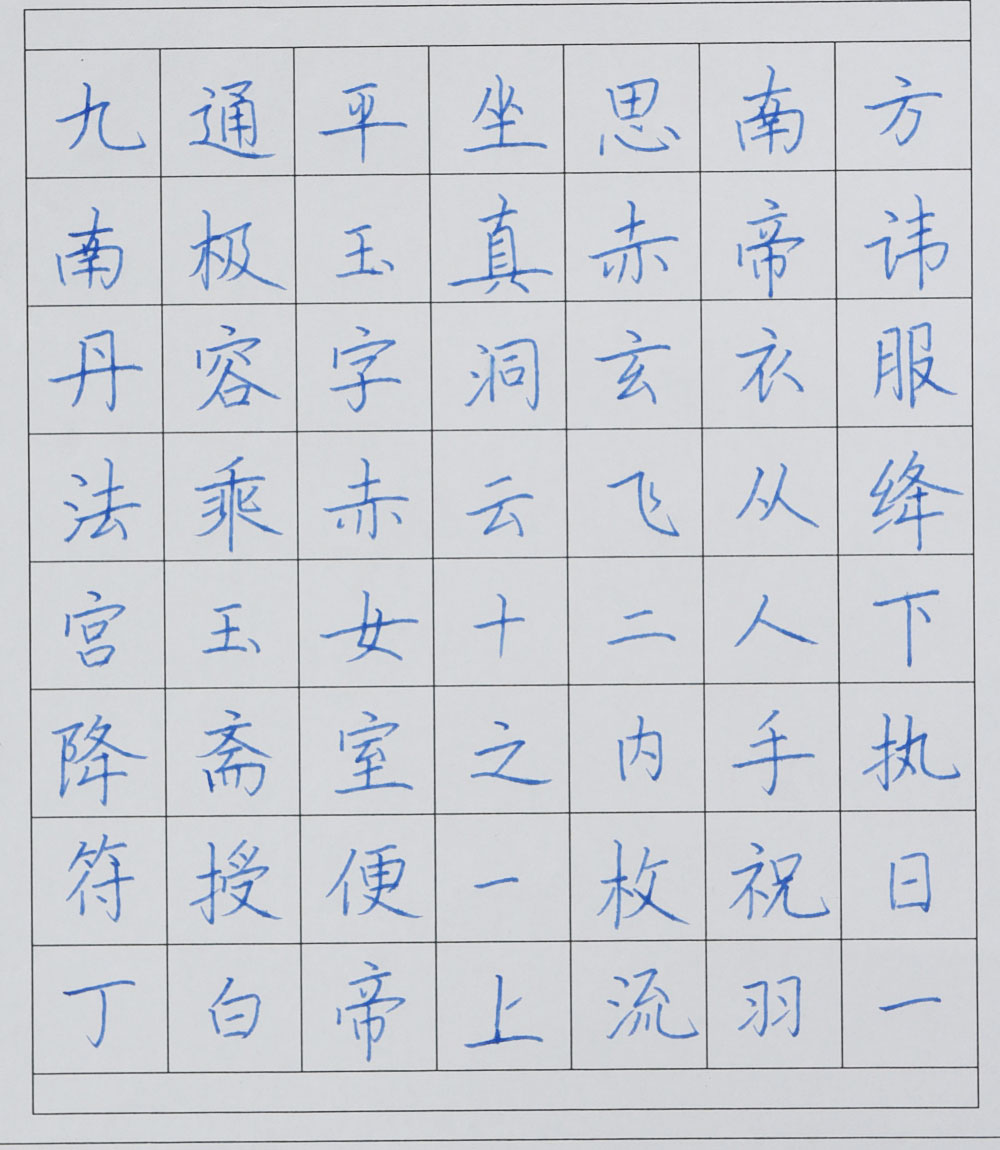 九通平坐思南方
南极玉真赤帝讳
丹容字洞玄衣服
法乘赤云飞从绛
宫玉女十二人下
降斋室之内手执
符授便一枚祝日
丁白帝上流羽一